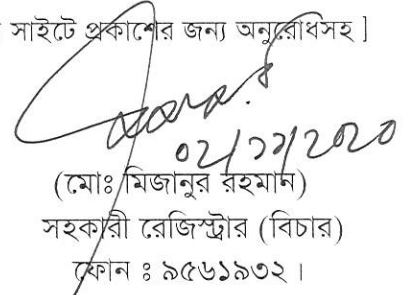 সাইটে প্রকাশের জন্য অনুরোধসহ ]
(মোঃ মিজানুর রহমান)
সহকারী রেজিস্ট্রার (বিচার)
ফোন ঃ ৯৫৬১৯৩২ ।